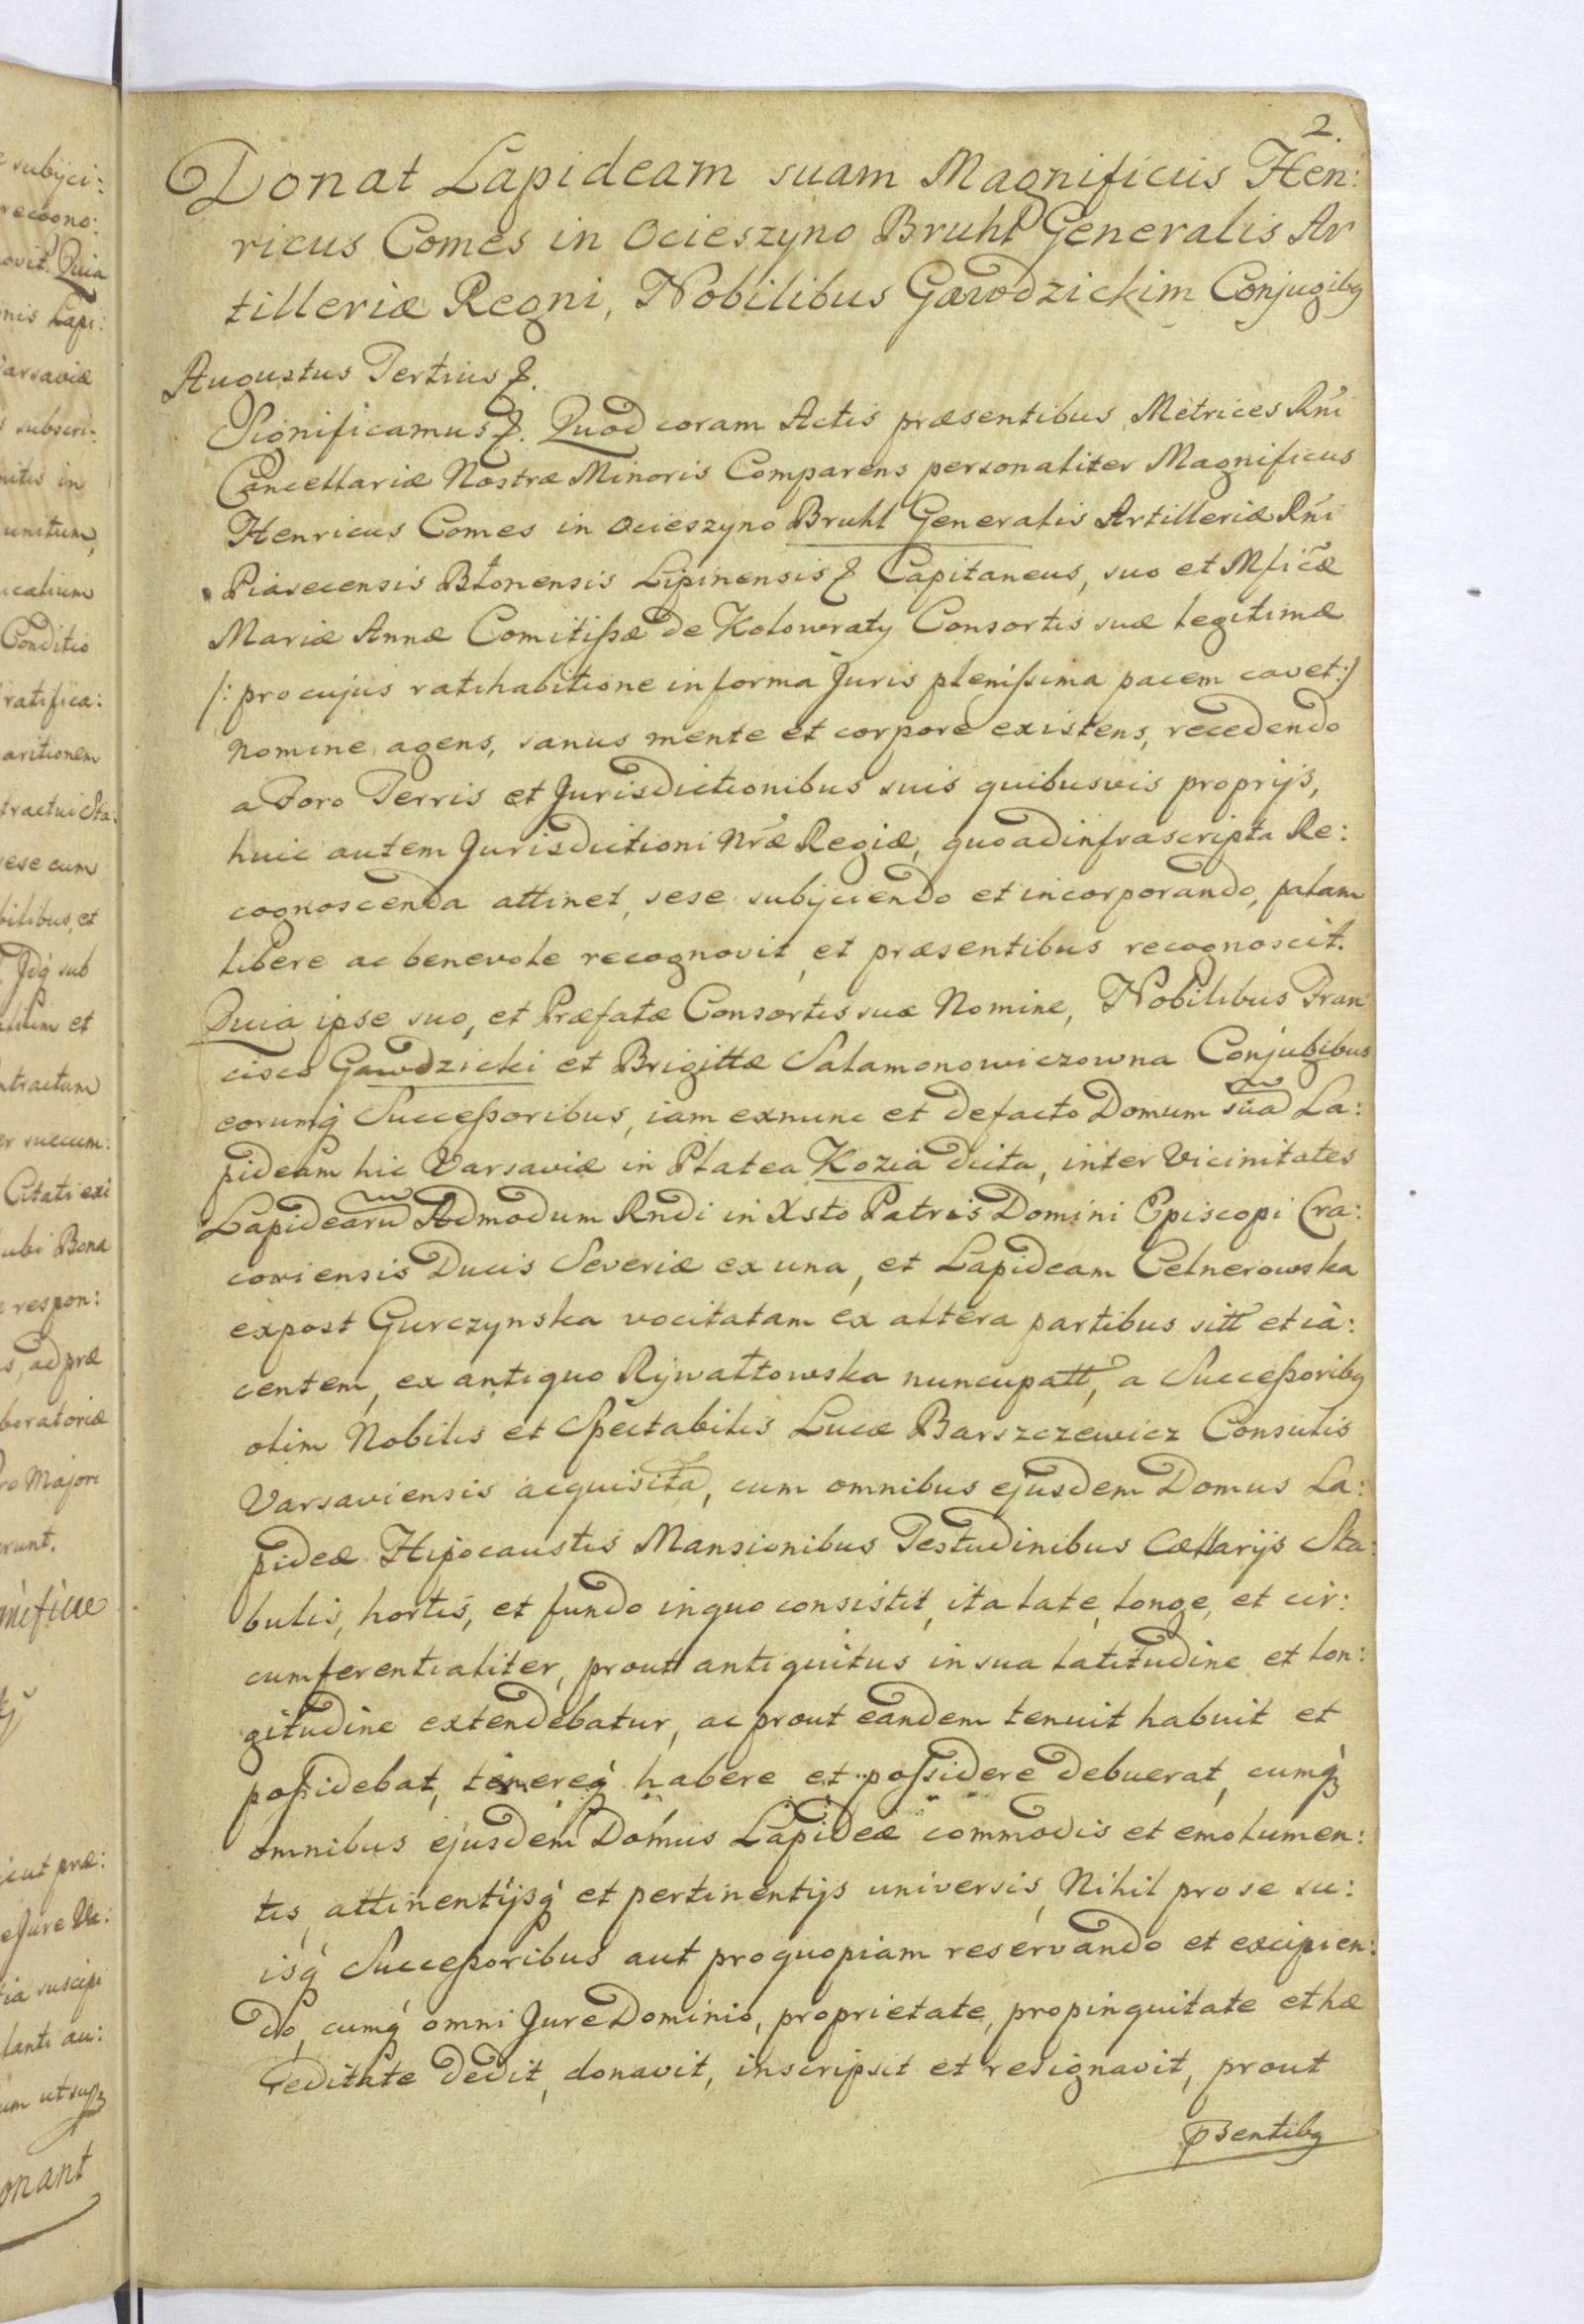 2.
Donat Lapideam suam Magnificus Hen:
ricus Comes in Ocieszyno Bruhl Generalis Ar
tilleriæ Regni, Nobilibus Gawdzickim Conjugibq
Augustus Tertius &.
Significamus &. Quod coram Actis præsentibus Metrices Rn̄i
Cancellariæ Nostræ Minoris Comparens personaliter Magnificus
Henricus Comes in Ocieszyno Bruhl Generalis Artilleriæ Rn̄i
Piasecensis Błonensis Lipinensis & Capitaneus, suo et Mficæ
Mariæ Annæ Comitissæ de Kolowraty Consortis suæ legitimæ
/: pro cujus ratihabitione in forma Juris plenissima pacem cavet :/
nomine agens, sanus mente et corpore existens, recedendo
a Foro Terris et Jurisdictionibus suis quibusvis proprijs,
huic autem Jurisdictioni Nr̄æ Regiæ, quoad infrascripta Re:
cognoscenda attinet, sese subijciendo et incorporando, palam
libere ac benevole recognovit, et præsentibus recognoscit.
Quia ipse suo, et Præfatæ Consortis suæ Nomine, Nobilibus Fran
cisco Gawdzicki et Brigittæ Salamonowiczowna Conjugibus
eorumq́ Successoribus, iam exnunc et defacto Domum suā La:
pideam hic Varsaviæ in Platea Kozia dicta, inter Vicinitates
Lapidearū Admodum Rndi in Xsto Patris Domini Episcopi Cra:
coviensis Ducis Severiæ ex una, et Lapideam Celnerowska
expost Gurczynska vocitatam ex altera partibus sitt et ia:
centem, ex antiquo Rywałtowska nuncupatt, a Successoribq
olim Nobilis et Spectabilis Lucæ Barszczewicz Consulis
Varsaviensis acquisita, cum omnibus ejusdem Domus La:
pideæ Hipocaustis Mansionibus Testudinibus Cællarijs Sta:
bulis, hortis, et fundo in quo consistit, ita late, longe, et cir:
cumferentialiter, prout antiquitus in sua latitudine et lon:
gitudine extendebatur, ac prout eandem tenuit habuit et
possidebat, tenereq́ habere et possidere debuerat, cumq́
omnibus ejusdem Domus Lapideæ commodis et emolumen:
tis, attinentijsq́ et pertinentijs universis, Nihil pro se su:
isq́ Successoribus aut pro quopiam reservando et excipien:
do, cumq́ omni Jure Dominio, proprietate, propinquitate et hæ
reditate dedit, donavit, inscripsit et resignavit, prout
pṡentibq